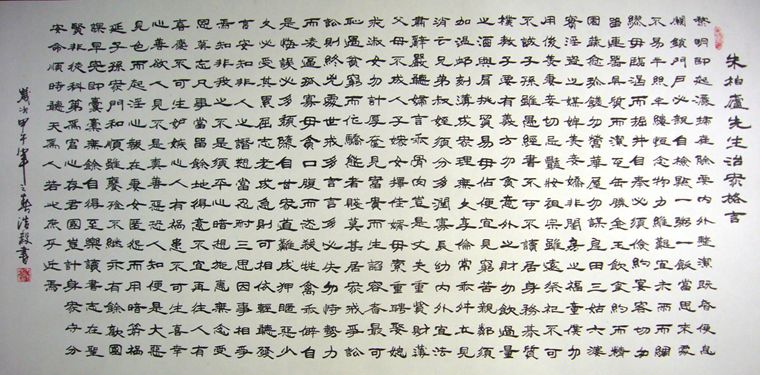 朱柏廬先生治家格言
黎明即起灑掃庭除要內外整潔既昏便息
關鎖門戶必親自檢點一粥一飯當思來處
不易半絲半縷恆念物力維艱宜未雨而綢
繆毋臨渴而掘井自奉必須儉約宴客切勿
留連器具質而潔瓦缶勝金玉飲食約而精
園蔬愈珍饈勿營華屋勿謀良田三姑六婆
實淫盜之媒婢美妾嬌非閨房之福童僕勿
用俊美妻妾切忌豔妝祖宗雖遠祭祀不可
不誠子孫雖愚經書不可不讀居身務期質
樸教子要有義方勿貪意外之財勿飲過量
之酒與肩挑貿易毋佔便宜見窮苦親鄰須
加溫卹刻薄成家理無久享倫常乖舛立見
消亡兄弟叔姪須分多潤寡長幼內外宜法
肅辭嚴聽婦言乖骨肉豈是丈夫重貲財薄
父母不成人子嫁女擇佳婿毋索重聘娶媳
求淑女勿計厚奩見富貴而生諂容者最可
恥遇貧窮而作驕態者賤莫甚居家戒爭訟
訟則終凶處世戒多言言多必失勿恃勢力
而凌逼孤寡毋貪口腹而恣殺牲禽乖僻自
是悔誤必多頹惰自甘家道難成狎暱惡少
久必受其累屈志老成急則可相依輕聽發
言安知非人之譖愬當忍耐三思因事相爭
焉知非我之不是須平心暗想施惠無念受
恩莫忘凡事當留餘地得意不宜再往人有
喜慶不可生妒嫉心人有禍患不可生喜幸
心善欲人見不是真善惡恐人知便是大惡
見色而起淫心報在妻女匿怨而用暗箭禍
延子孫家門和順雖饔飧不繼亦有餘歡國
課早完即囊橐無餘自得至樂讀書志在聖
賢非徒科第為官心存君國豈計身家守分
安命順時聽天為人若此庶乎近焉
歲次甲午年之春浩毅書